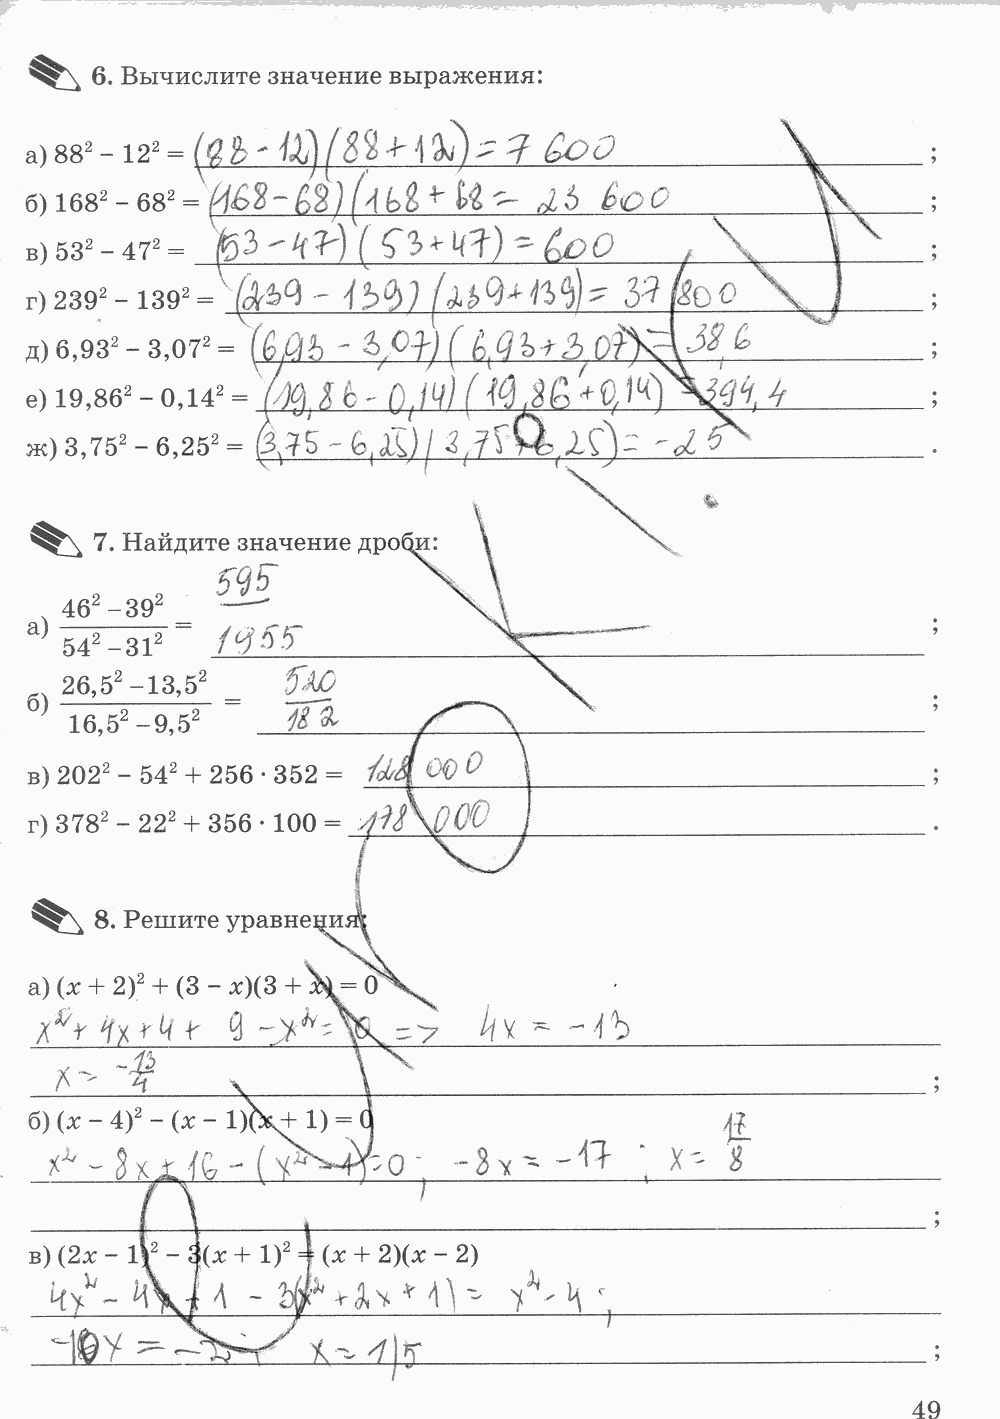 6. Вычислите значение выражения:
а) 88² – 12² = (88 - 12) (88 + 12) = 7 600 ;
б) 168² – 68² = (168 - 68) (168 + 68 = 23 600 ;
в) 53² – 47² = (53 - 47) (53 + 47) = 600 ;
г) 239² – 139² = (239 - 139) (239 + 139) = 37 800 ;
д) 6,93² – 3,07² = (6,93 - 3,07) (6,93 + 3,07) = 38,6 ;
е) 19,86² – 0,14² = (19,86 - 0,14) (19,86 + 0,14) = 394,4 ;
ж) 3,75² – 6,25² = (3,75 - 6,25) (3,75 + 6,25) = -25 .
7. Найдите значение дроби:
а) (46² – 39²)/(54² – 31²) = 595/1955 ;
б) (26,5² – 13,5²)/(16,5² – 9,5²) = 520/182 ;
в) 202² – 54² + 256 · 352 = 128 000 ;
г) 378² – 22² + 356 · 100 = 178 000 .
8. Решите уравнения:
а) (x + 2)² + (3 – x)(3 + x) = 0
x² + 4x + 4 + 9 - x² = 0 => 4x = -13
x = -13/4 ;
б) (x – 4)² – (x – 1)(x + 1) = 0
x² - 8x + 16 - (x² - 1) = 0 ; -8x = -17 ; x = 17/8
;
в) (2x – 1)² – 3(x + 1)² = (x + 2)(x – 2)
4x² - 4x + 1 - 3(x² + 2x + 1) = x² - 4 ;
-10x = -2 ; x = 1/5 ;
49